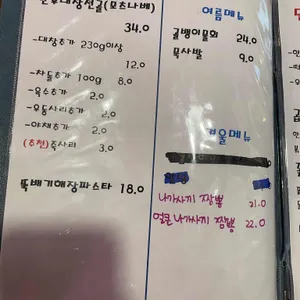 대창전골(모츠나베)
34.0
-대창추가 230g이상
12.0
-차돌추가 100g 8.0
-육수추가 2.0
-우동사리추가 2.0
-야채추가 2.0
(추천)죽사리 3.0
뚝배기해장파스타 18.0
여름메뉴
골뱅이물회 24.0
묵사발 9.0
겨울메뉴
나가사끼 짬뽕 21.0
얼큰나가사끼 짬뽕 22.0